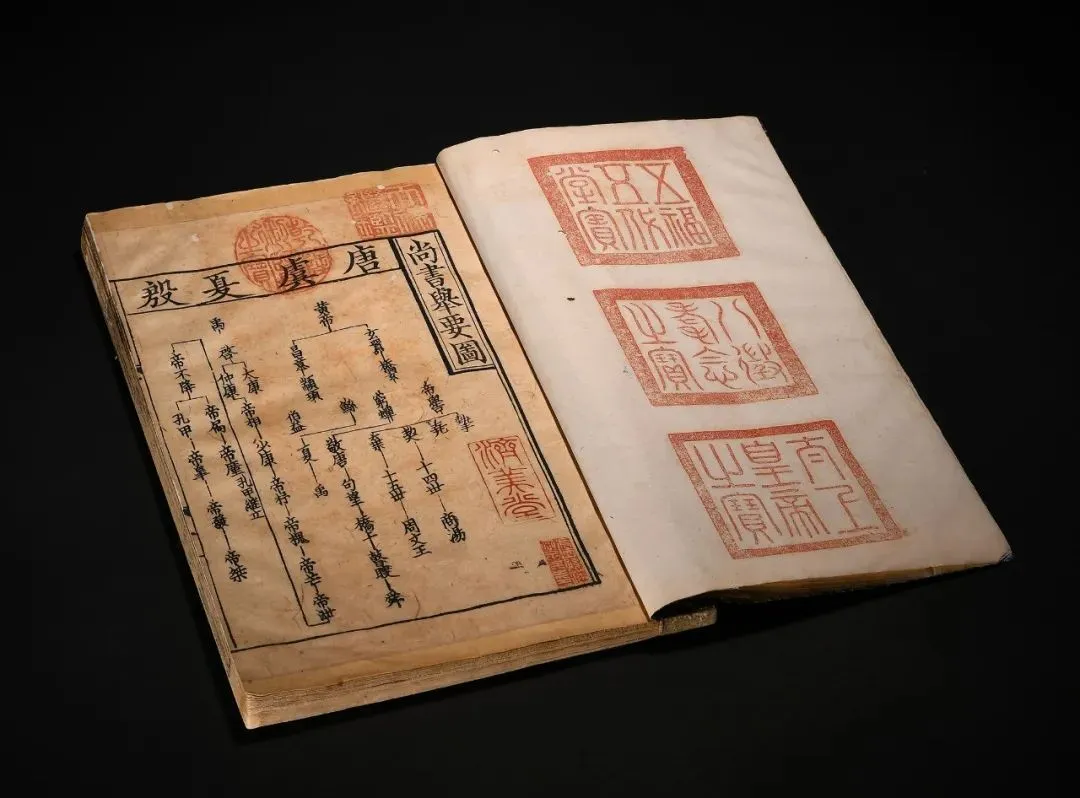 五福五代堂寶
八徵耄念之寶
太上皇帝之寶
尚書舉要圖
唐虞夏殷
乾隆御覽之寶
濟美堂
黃帝
玄囂
帝嚳
堯
摯
契
十四世
商湯
十五世
周文王
昌意
顓頊
窮蟬
敬康
句望
橋牛
瞽瞍
舜
鯀
夏
禹
伯益
禹
啓
太康
仲康
帝相
少康
帝杼
帝槐
帝芒
帝泄
帝不降
帝扃
帝廑
孔甲
帝皋
帝發
帝桀